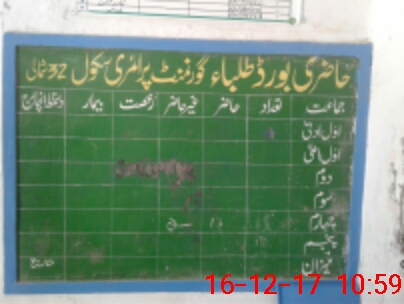 حاضری بورڈ طلباء گورنمنٹ پرائمری سکول 32 شمالی
جماعت تعداد حاضر غیر حاضر رخصت بیمار دستخط انچارج
اول ادنیٰ
اول اعلیٰ
دوم
سوم
چہارم
پنجم
میزان
16-12-17 10:59